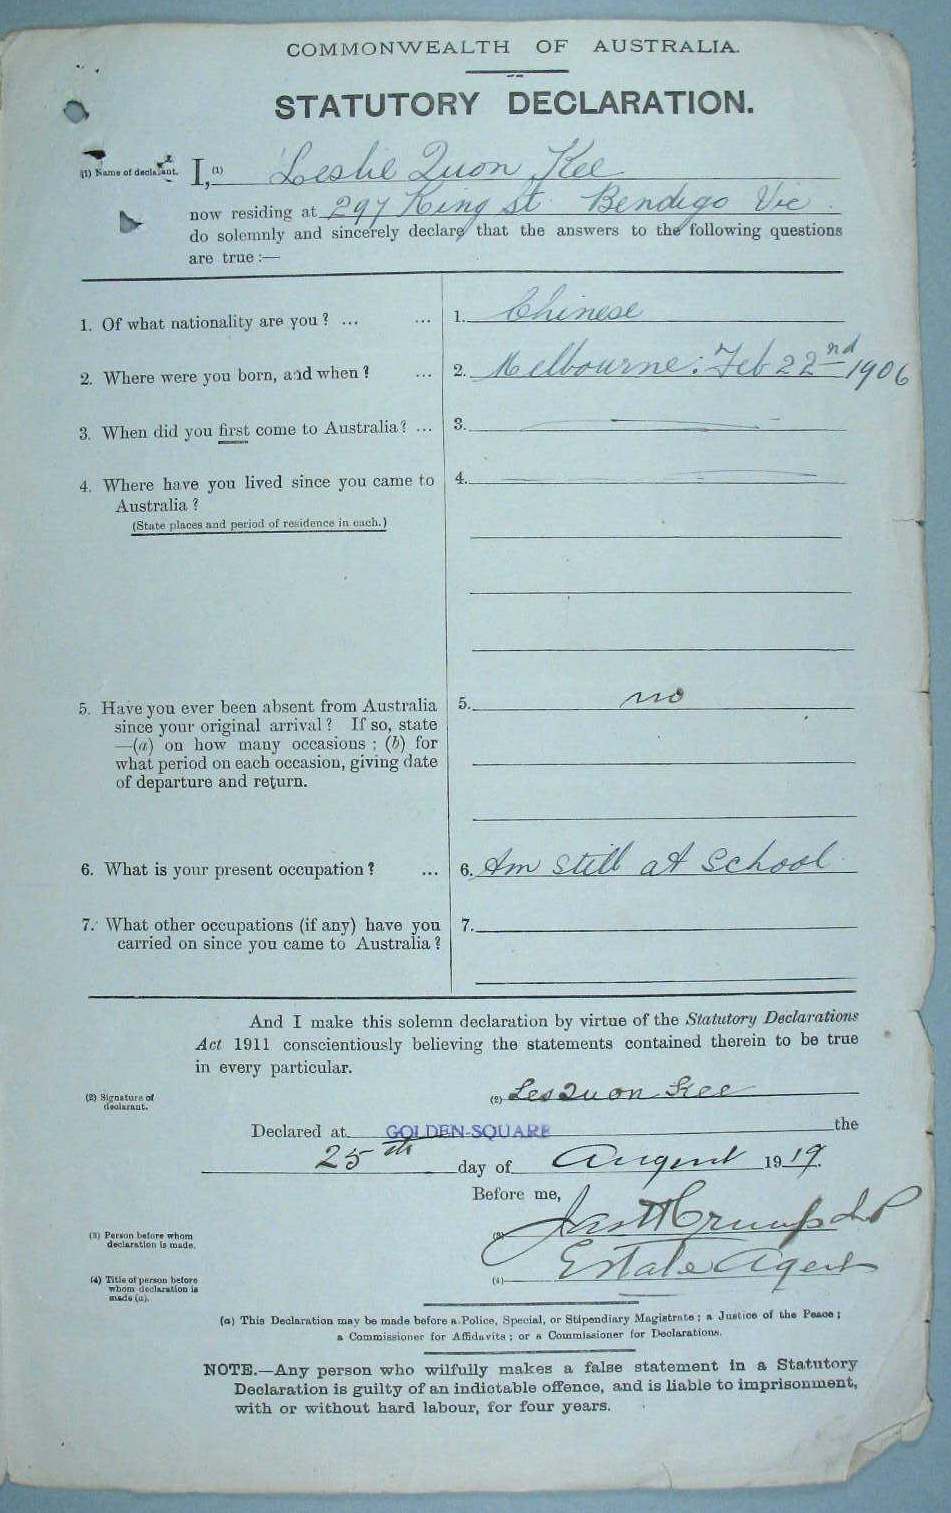 COMMONWEALTH OF AUSTRALIA.
STATUTORY DECLARATION.
(1) Name of declarant. I, (1) Leslie Quon Kee
now residing at 297 King St. Bendigo Vic.
do solemnly and sincerely declare that the answers to the following questions
are true :—
1. Of what nationality are you ? ... ... 1. Chinese
2. Where were you born, and when ? ... 2. Melbourne : Feb 22nd 1906
3. When did you first come to Australia ? ... 3.
4. Where have you lived since you came to 4.
Australia ?
(State places and period of residence in each.)
5. Have you ever been absent from Australia 5. no
since your original arrival ? If so, state
—(a) on how many occasions ; (b) for
what period on each occasion, giving date
of departure and return.
6. What is your present occupation ? ... 6. Am still at school
7. What other occupations (if any) have you 7.
carried on since you came to Australia ?
And I make this solemn declaration by virtue of the Statutory Declarations
Act 1911 conscientiously believing the statements contained therein to be true
in every particular.
(2) Signature of (2) Les Quon Kee
declarant.
Declared at GOLDEN-SQUARE the
25th day of August 1919.
Before me,
(3) Person before whom (3) Crump J P
declaration is made.
(4) Title of person before (4) Estate Agent
whom declaration is
made (a).
(a) This Declaration may be made before a Police, Special, or Stipendiary Magistrate ; a Justice of the Peace ;
a Commissioner for Affidavits ; or a Commissioner for Declarations.
NOTE.—Any person who wilfully makes a false statement in a Statutory
Declaration is guilty of an indictable offence, and is liable to imprisonment,
with or without hard labour, for four years.